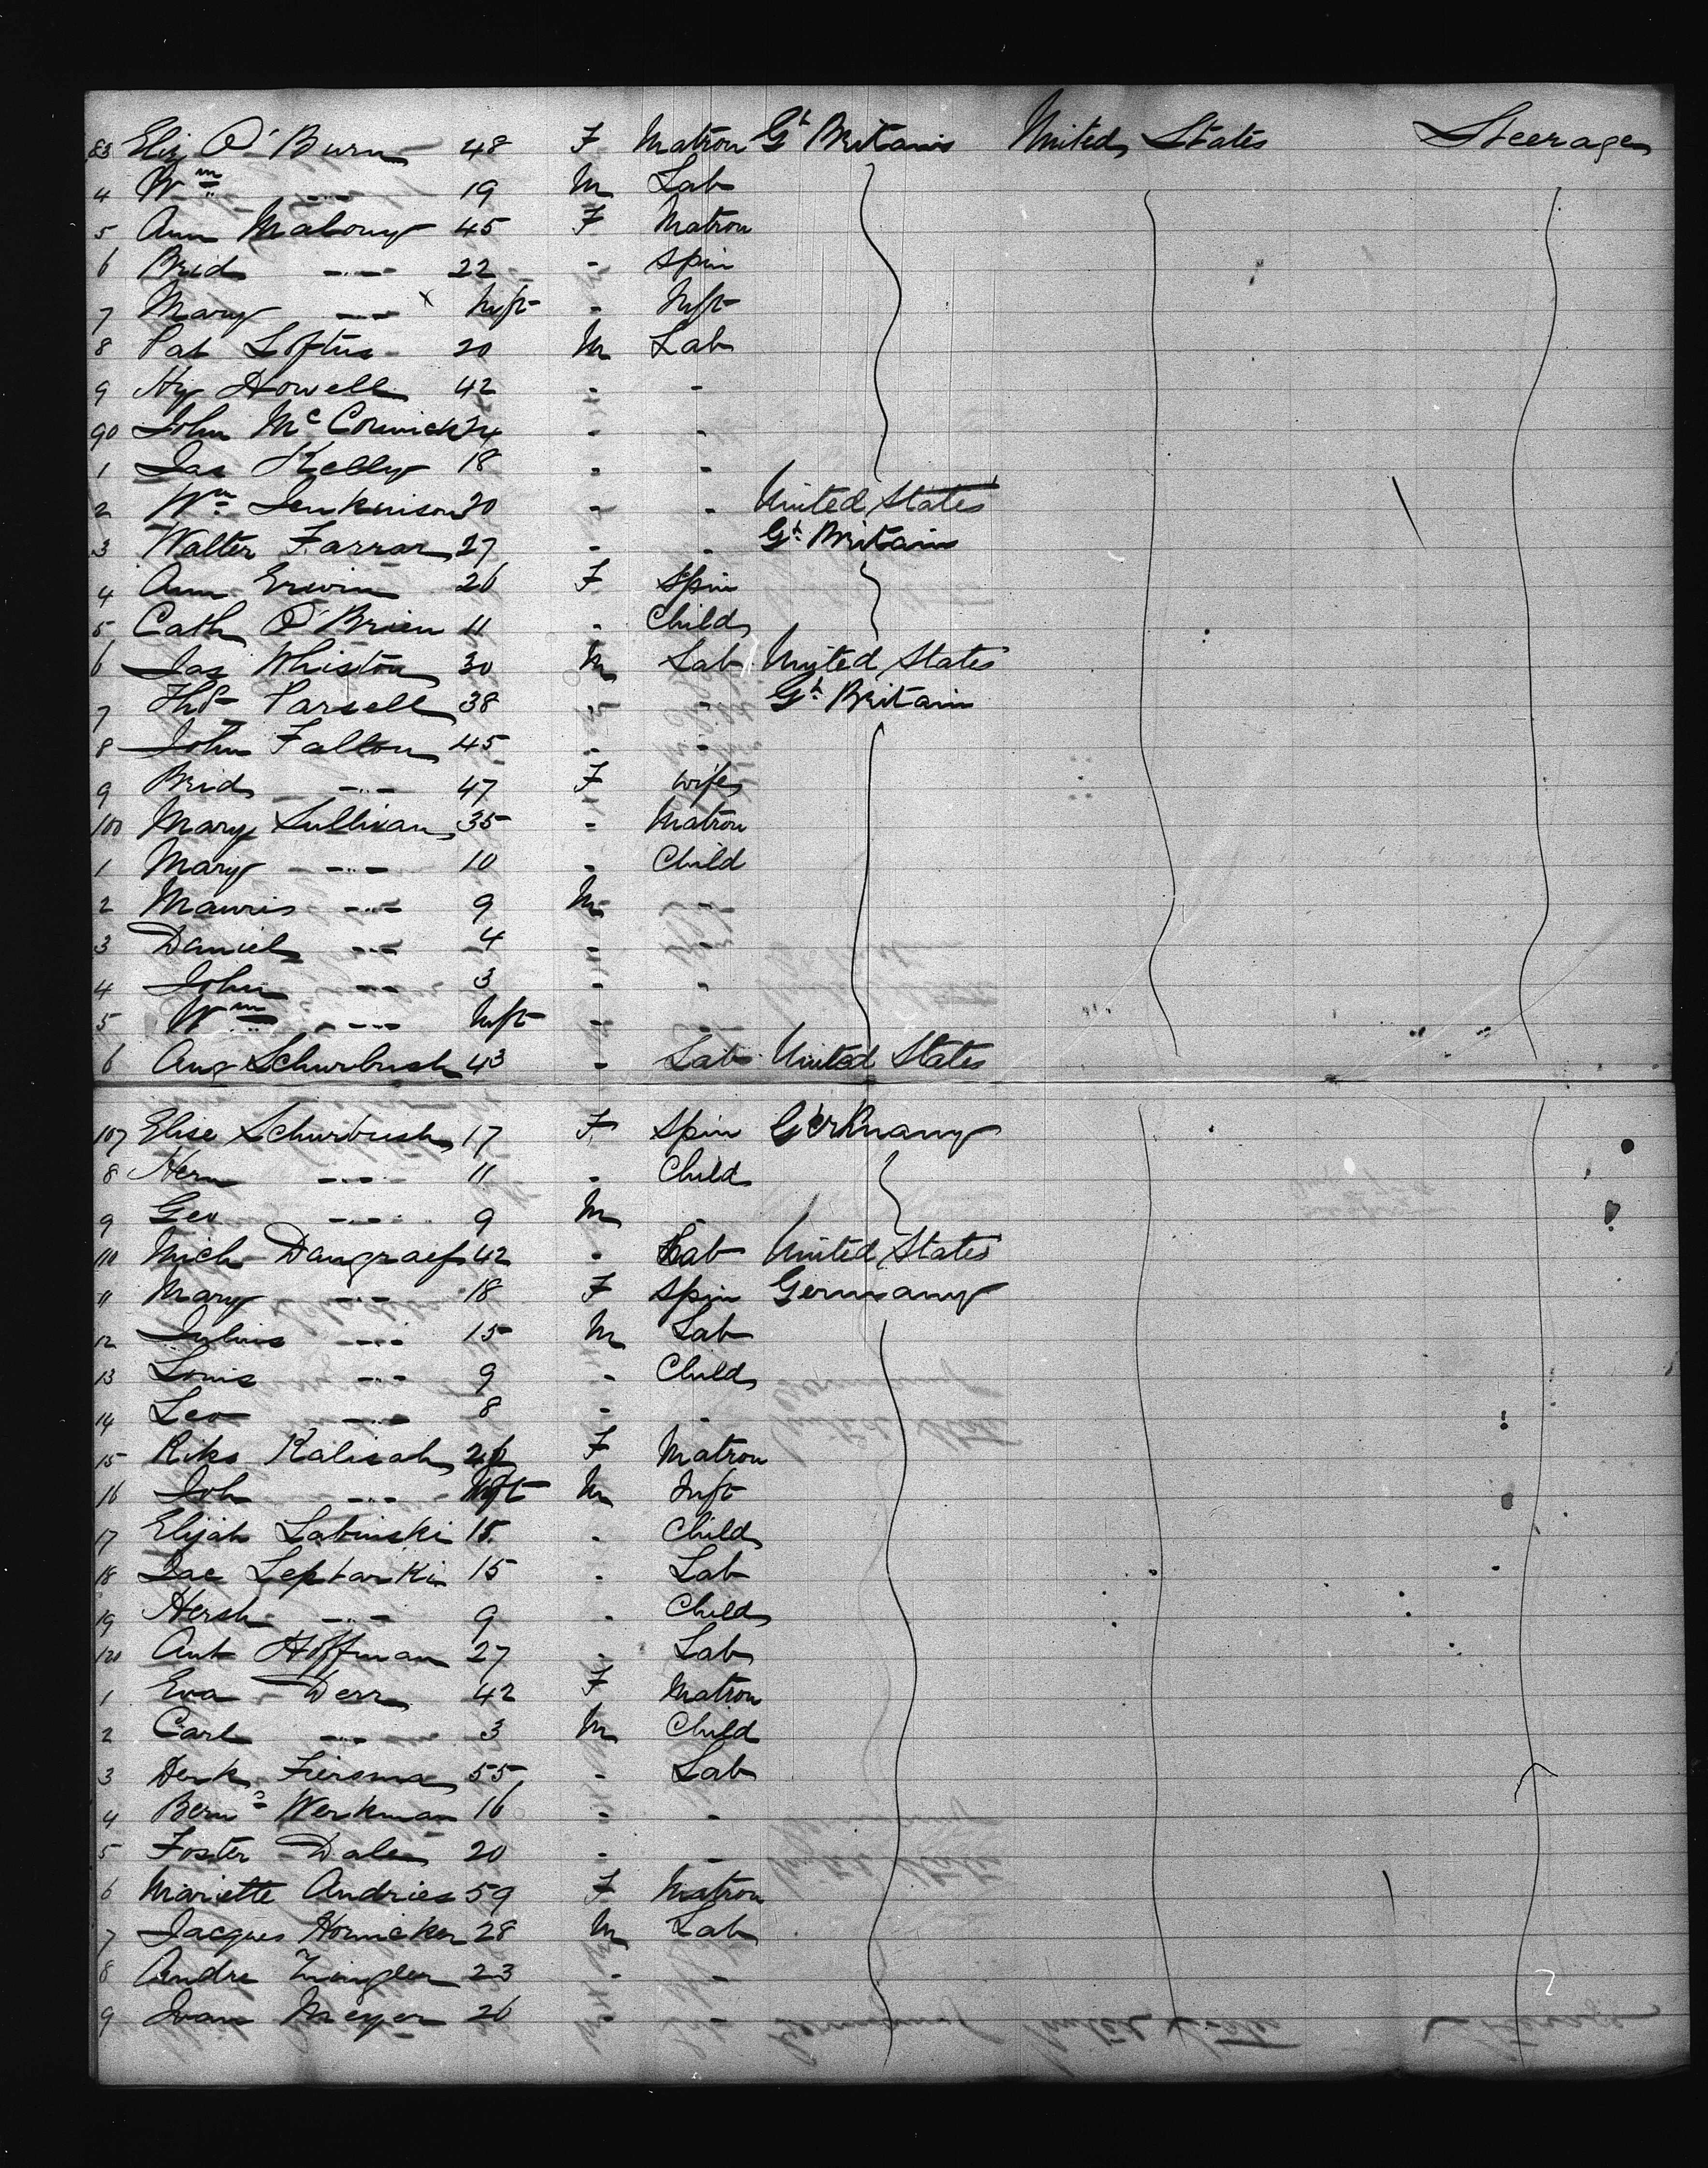 83 Eliz O'Burn 48 F Matron Gt Britain United States Steerage
4 Wm " 19 M Lab
5 Ann Malony 45 F Matron
6 Brid " 22 " Spin
7 Mary " x Inft " Inft
8 Pat Loftus 20 M Lab
9 Hy Howell 42 " "
90 John McCormick 24 " "
1 Jas Kelly 18 " "
2 Wm Jenkinson 20 " " United States
3 Walter Farrar 27 " " Gt Britain
4 Ann Erwin 26 F Spin
5 Cath O'Brien 11 " Child
6 Jas Whiston 30 M Lab United States
7 Thos Parsell 38 " " Gt Britain
8 John Fallon 45 " "
9 Brid " 47 F Wife
100 Mary Sullivan 35 " Matron
1 Mary " 10 " Child
2 Mauris " 9 M "
3 Daniel " 4 " "
4 John " 3 " "
5 Wm " Inft "
6 Aug Schurbush 43 " Lab United States
107 Elise Schurbush 17 F Spin Germany
8 Herm " 11 " Child
9 Geo " 9 M "
110 Mich Dangraef 42 " Lab United States
11 Mary " 18 F Spin Germany
12 Julius " 15 M Lab
13 Louis " 9 " Child
14 Leo " 8 " "
15 Riks Kalisah F Matron
16 Joh " Inft M Inft
17 Elijah Labinski 15 " Child
18 Jac Leptarki 15 " Lab
19 Hersh " 9 " Child
120 Ant Hoffman 27 " Lab
1 Eva Derr 42 F Matron
2 Carl " 3 M Child
3 Derk Fiersma 55 " Lab
4 Bernd Werkman 16 " "
5 Foster Dale 20 " "
6 Mariette Andries 59 F Matron
7 Jacques Hornicker 28 M Lab
8 Andre 23 " "
9 Ivan Meyer 26 " "